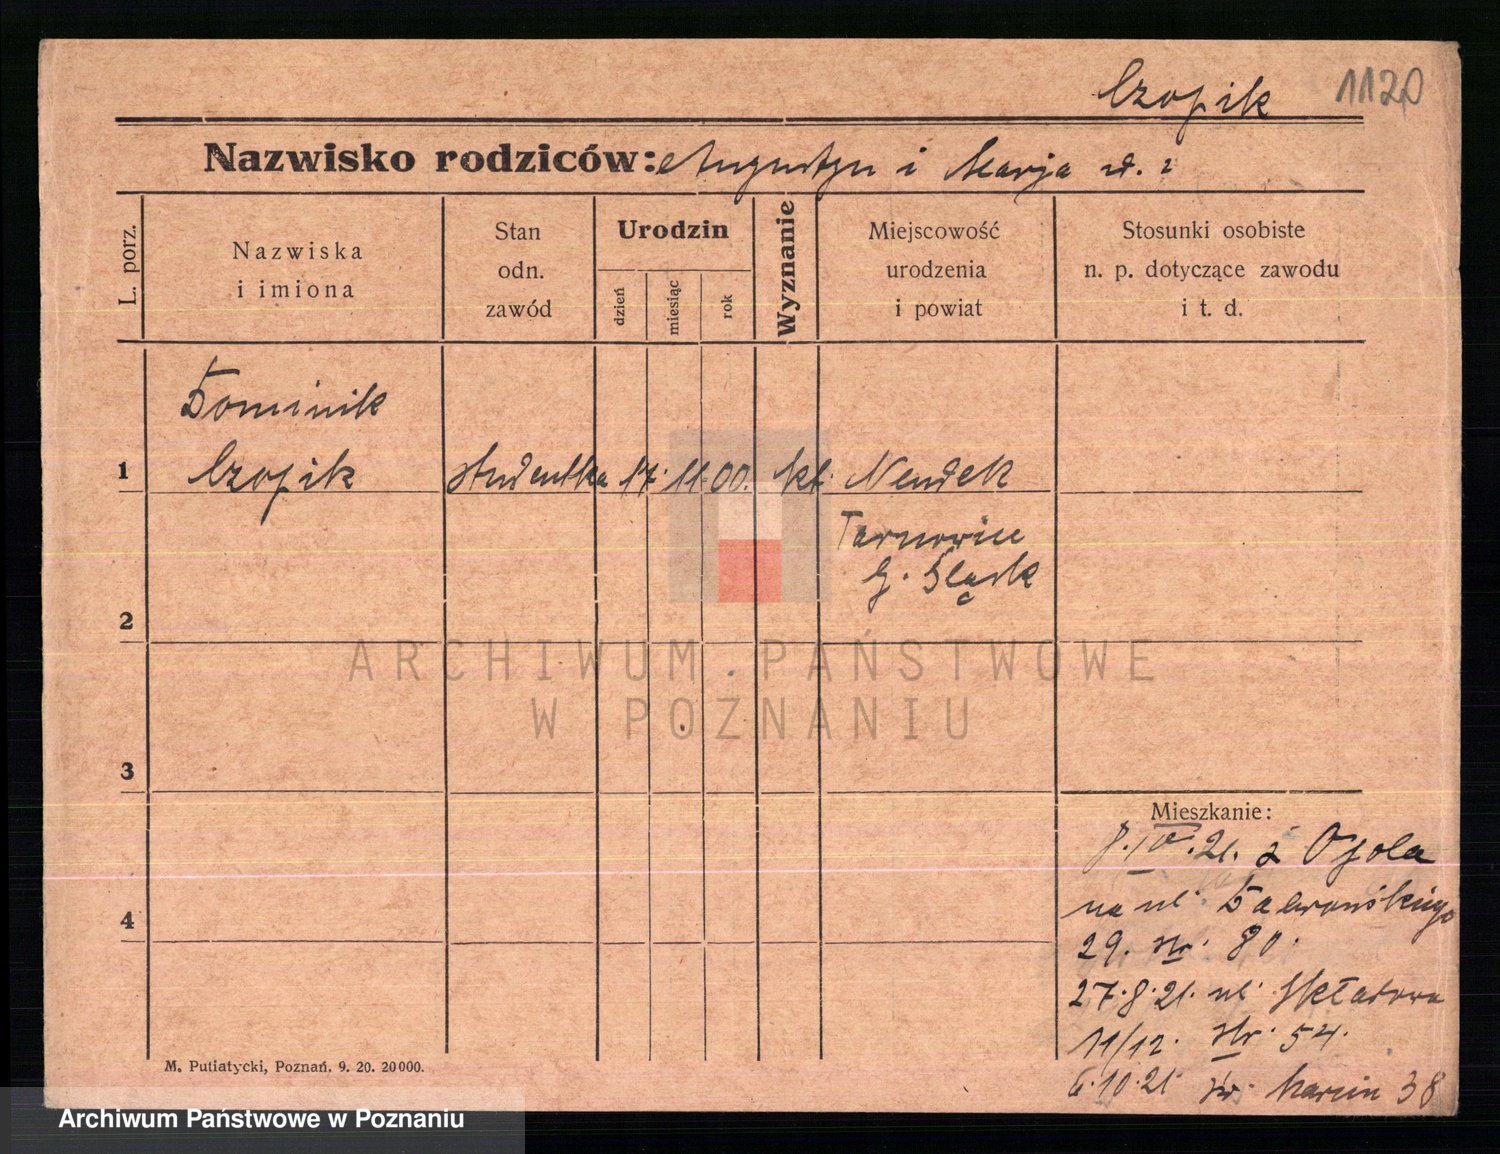 Czopik 1120
Nazwisko rodziców: Augustyn i Marja
L. porz.
Nazwiska i imiona
Stan odn. zawód
Urodzin
dzień
miesiąc
rok
Wyznanie
Miejscowość urodzenia i powiat
Stosunki osobiste n. p. dotyczące zawodu i t. d.
Dominik
1 Czopik studentka 17. 11. 00. kt. Neudek
Tarnowice
G. Śląsk
2
ARCHIWUM PAŃSTWOWE
W POZNANIU
3
Mieszkanie:
8. IV. 21. z Opola
na ul. Dąbrowskiego
4
29. str. 80.
27. 8. 21. ul. Składowa
11/12. str. 54.
6. 10. 21. św. Marcin 38
M. Putiatycki, Poznań. 9. 20. 20000.
Archiwum Państwowe w Poznaniu